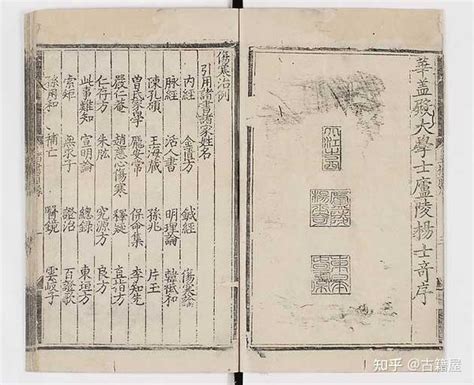 華盖殿大學士廬陵楊士奇序
傷寒治例
引用書諸家姓名
內經 金匱方 鍼經 傷寒論
脉經 活人書 明理論 韓祗和
陳孔碩 王海藏 孫兆 片玉
曾氏家學 龐安常 保命集 李知先
嚴仁庵 傷寒 釋疑 直指方
仁存方 朱肱 究源方 良方
此事難知 宣明論 總錄 東垣方
索矩 無求子 證治 百證歌
孫用和 補亡 醫鏡 雲岐子
知乎 @古籍屋